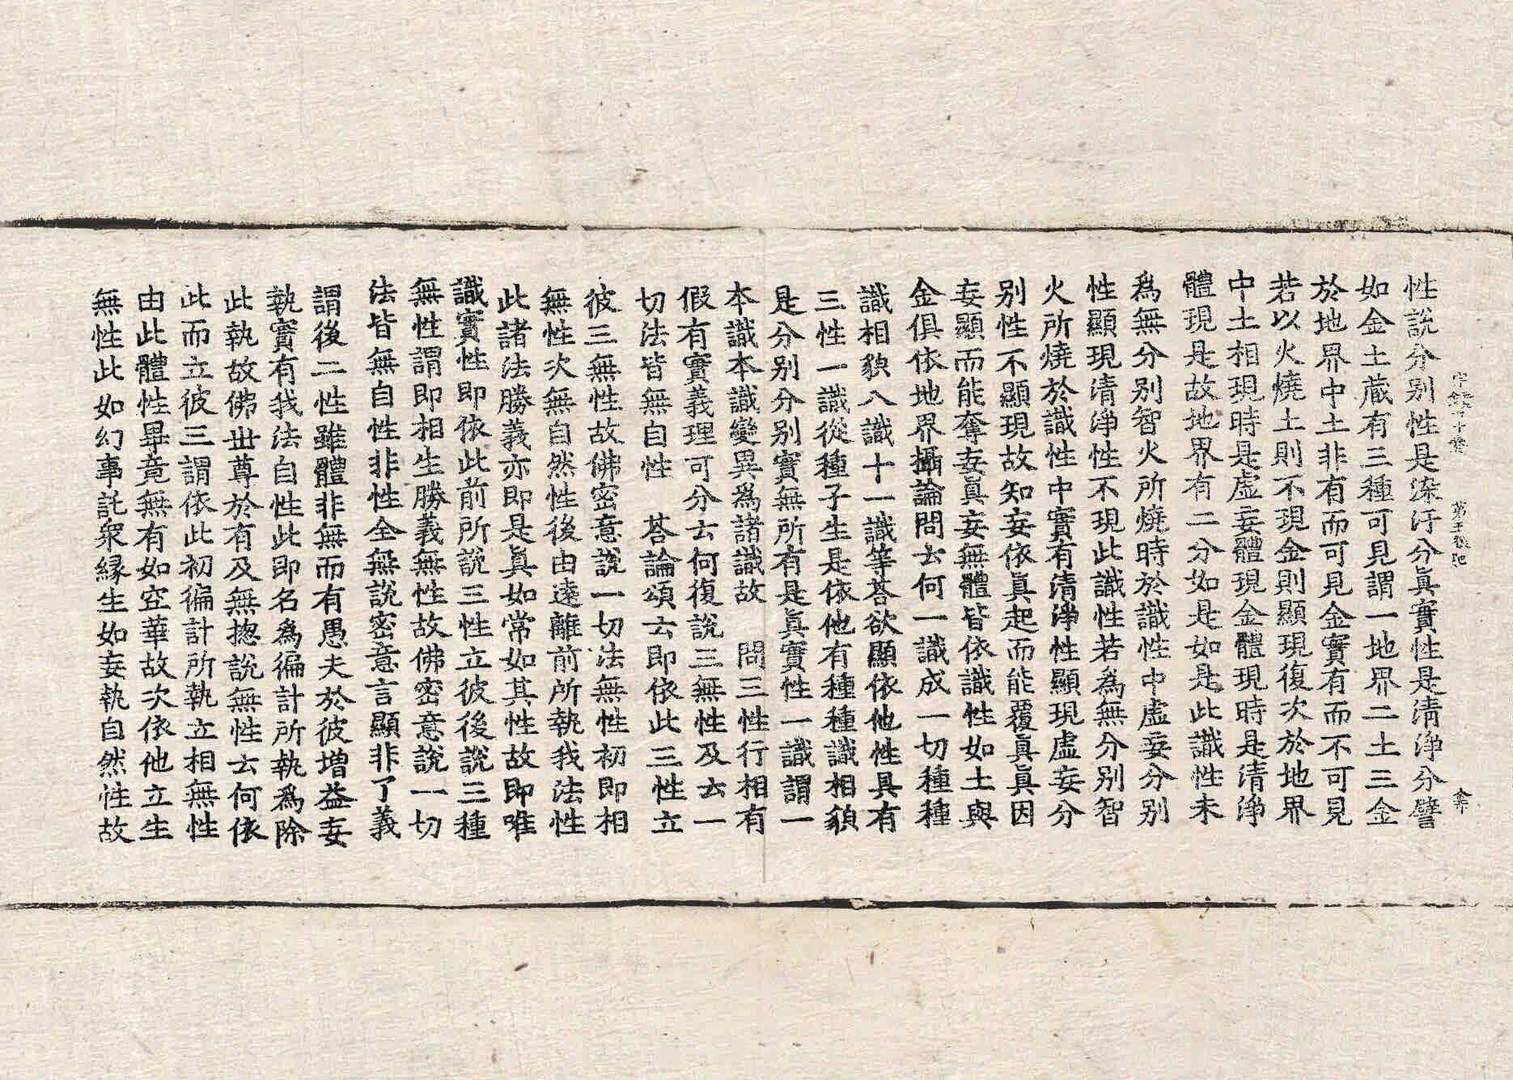 性說分別性是染汙分真實性是清淨分譬
如金土藏有三種可見謂一地界二土三金
於地界中土非有而可見金實有而不可見
若以火燒土則不現金則顯現復次於地界
中土相現時是虛妄體現金體現時是清淨
體現是故地界有二分如是如是此識性未
爲無分別智火所燒時於識性中虛妄分別
性顯現清淨性不現此識性若爲無分別智
火所燒於識性中實有清淨性顯現虛妄分
別性不顯現故知妄依真起而能覆真真因
妄顯而能奪妄真妄無體皆依識性如土與
金俱依地界攝論問云何一識成一切種種
識相貌八識十一識等荅欲顯依他性具有
三性一識從種子生是依他有種種識相貌
是分別分別實無所有是真實性一識謂一
本識本識變異爲諸識故　問三性行相有
假有實義理可分云何復說三無性及云一
切法皆無自性　荅論頌云即依此三性立
彼三無性故佛密意說一切法無性初即相
無性次無自然性後由遠離前所執我法性
此諸法勝義亦即是真如常如其性故即唯
識實性即依此前所說三性立彼後說三種
無性謂即相生勝義無性故佛密意說一切
法皆無自性非性全無說密意言顯非了義
謂後二性雖體非無而有愚夫於彼增益妄
執實有我法自性此即名爲徧計所執爲除
此執故佛世尊於有及無揔說無性云何依
此而立彼三謂依此初徧計所執立相無性
由此體性畢竟無有如空華故次依他立生
無性此如幻事託衆緣生如妄執自然性故